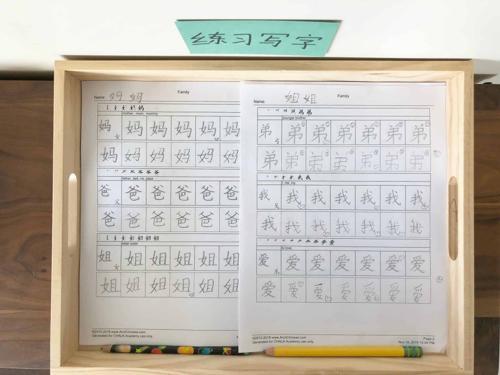 练习写字
Family
Name: 妈 妈
mother, mom, mummy
妈 妈 妈 妈 妈 妈
妈 妈 妈 妈 妈 妈
爸 爸 爸 爸 爸 爸
爸 爸 爸 爸 爸 爸
姐 姐 姐 姐 姐 姐
姐 姐 姐 姐 姐 姐
Generated for CHALK Academy use only.
Family
Name: 姐 姐
younger brother
弟 弟 弟 弟 弟 弟 弟
弟 弟 弟 弟 弟 弟 弟
我 我 我 我 我 我 我
我 我 我 我 我 我 我
爱 爱 爱 爱 爱 爱 爱
爱 爱 爱 爱 爱 爱 爱
Page 2
Generated for CHALK Academy use only.